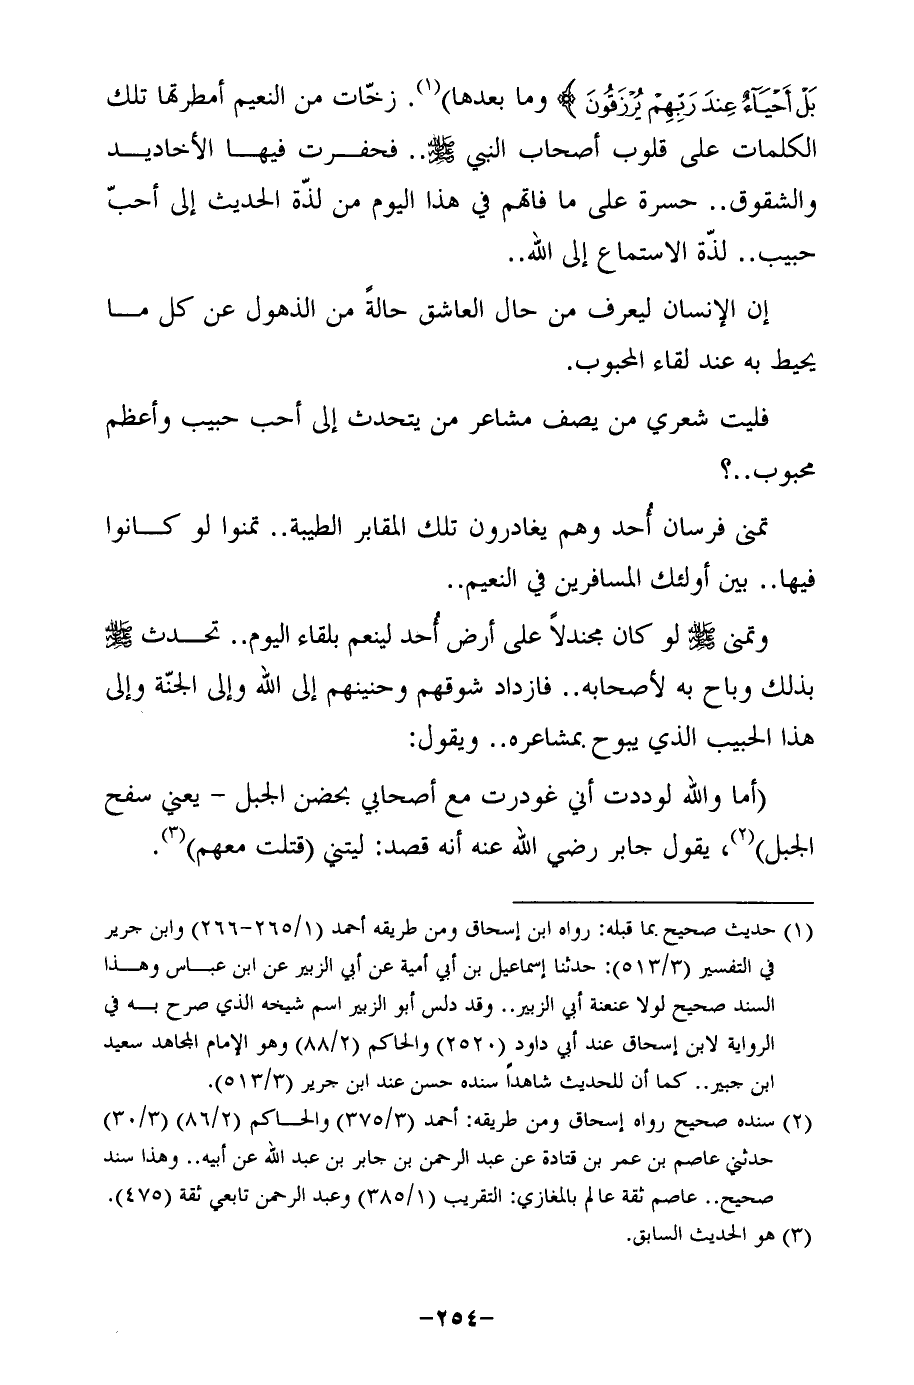 بَلْ أَحْيَآءٌ عِندَ رَبِّهِمْ يُرْزَقُونَ ﴾ وما بعدها)(١). زخّات من النعيم أمطرتها تلك
الكلمات على قلوب أصحاب النبي ﷺ.. فحفـــرت فيهـــا الأخاديـــد
والشقوق.. حسرة على ما فاتهم في هذا اليوم من لذّة الحديث إلى أحبّ
حبيب.. لذّة الاستماع إلى الله..
إن الإنسان ليعرف من حال العاشق حالةً من الذهول عن كل مـــا
يحيط به عند لقاء المحبوب.
فليت شعري من يصف مشاعر من يتحدث إلى أحب حبيب وأعظم
محبوب..؟
تمنى فرسان أُحد وهم يغادرون تلك المقابر الطيبة.. تمنوا لو كـــانوا
فيها.. بين أولئك المسافرين في النعيم..
وتمنى ﷺ لو كان مجندلاً على أرض أُحد لينعم بلقاء اليوم.. تحـــدث ﷺ
بذلك وباح به لأصحابه.. فازداد شوقهم وحنينهم إلى الله وإلى الجنّة وإلى
هذا الحبيب الذي يبوح بمشاعره.. ويقول:
(أما والله لوددت أني غودرت مع أصحابي بحضن الجبل – يعني سفح
الجبل)(٢)، يقول جابر رضي الله عنه أنه قصد: ليتني (قتلت معهم)(٣).
(١) حديث صحيح بما قبله: رواه ابن إسحاق ومن طريقه أحمد (٢٦٥/١-٢٦٦) وابن جرير
في التفسير (٥١٣/٣): حدثنا إسماعيل بن أبي أمية عن أبي الزبير عن ابن عبـــاس وهـــذا
السند صحيح لولا عنعنة أبي الزبير.. وقد دلس أبو الزبير اسم شيخه الذي صرح بـــه في
الرواية لابن إسحاق عند أبي داود (٢٥٢٠) والحاكم (٨٨/٢) وهو الإمام المجاهد سعيد
ابن جبير.. كما أن للحديث شاهداً سنده حسن عند ابن جرير (٥١٣/٣).
(٢) سنده صحيح رواه إسحاق ومن طريقه: أحمد (٣٧٥/٣) والحـــاكم (٨٦/٢) (٣٠/٣)
حدثني عاصم بن عمر بن قتادة عن عبد الرحمن بن جابر بن عبد الله عن أبيه.. وهذا سند
صحيح.. عاصم ثقة عالم بالمغازي: التقريب (٣٨٥/١) وعبد الرحمن تابعي ثقة (٤٧٥).
(٣) هو الحديث السابق.
-٢٥٤-